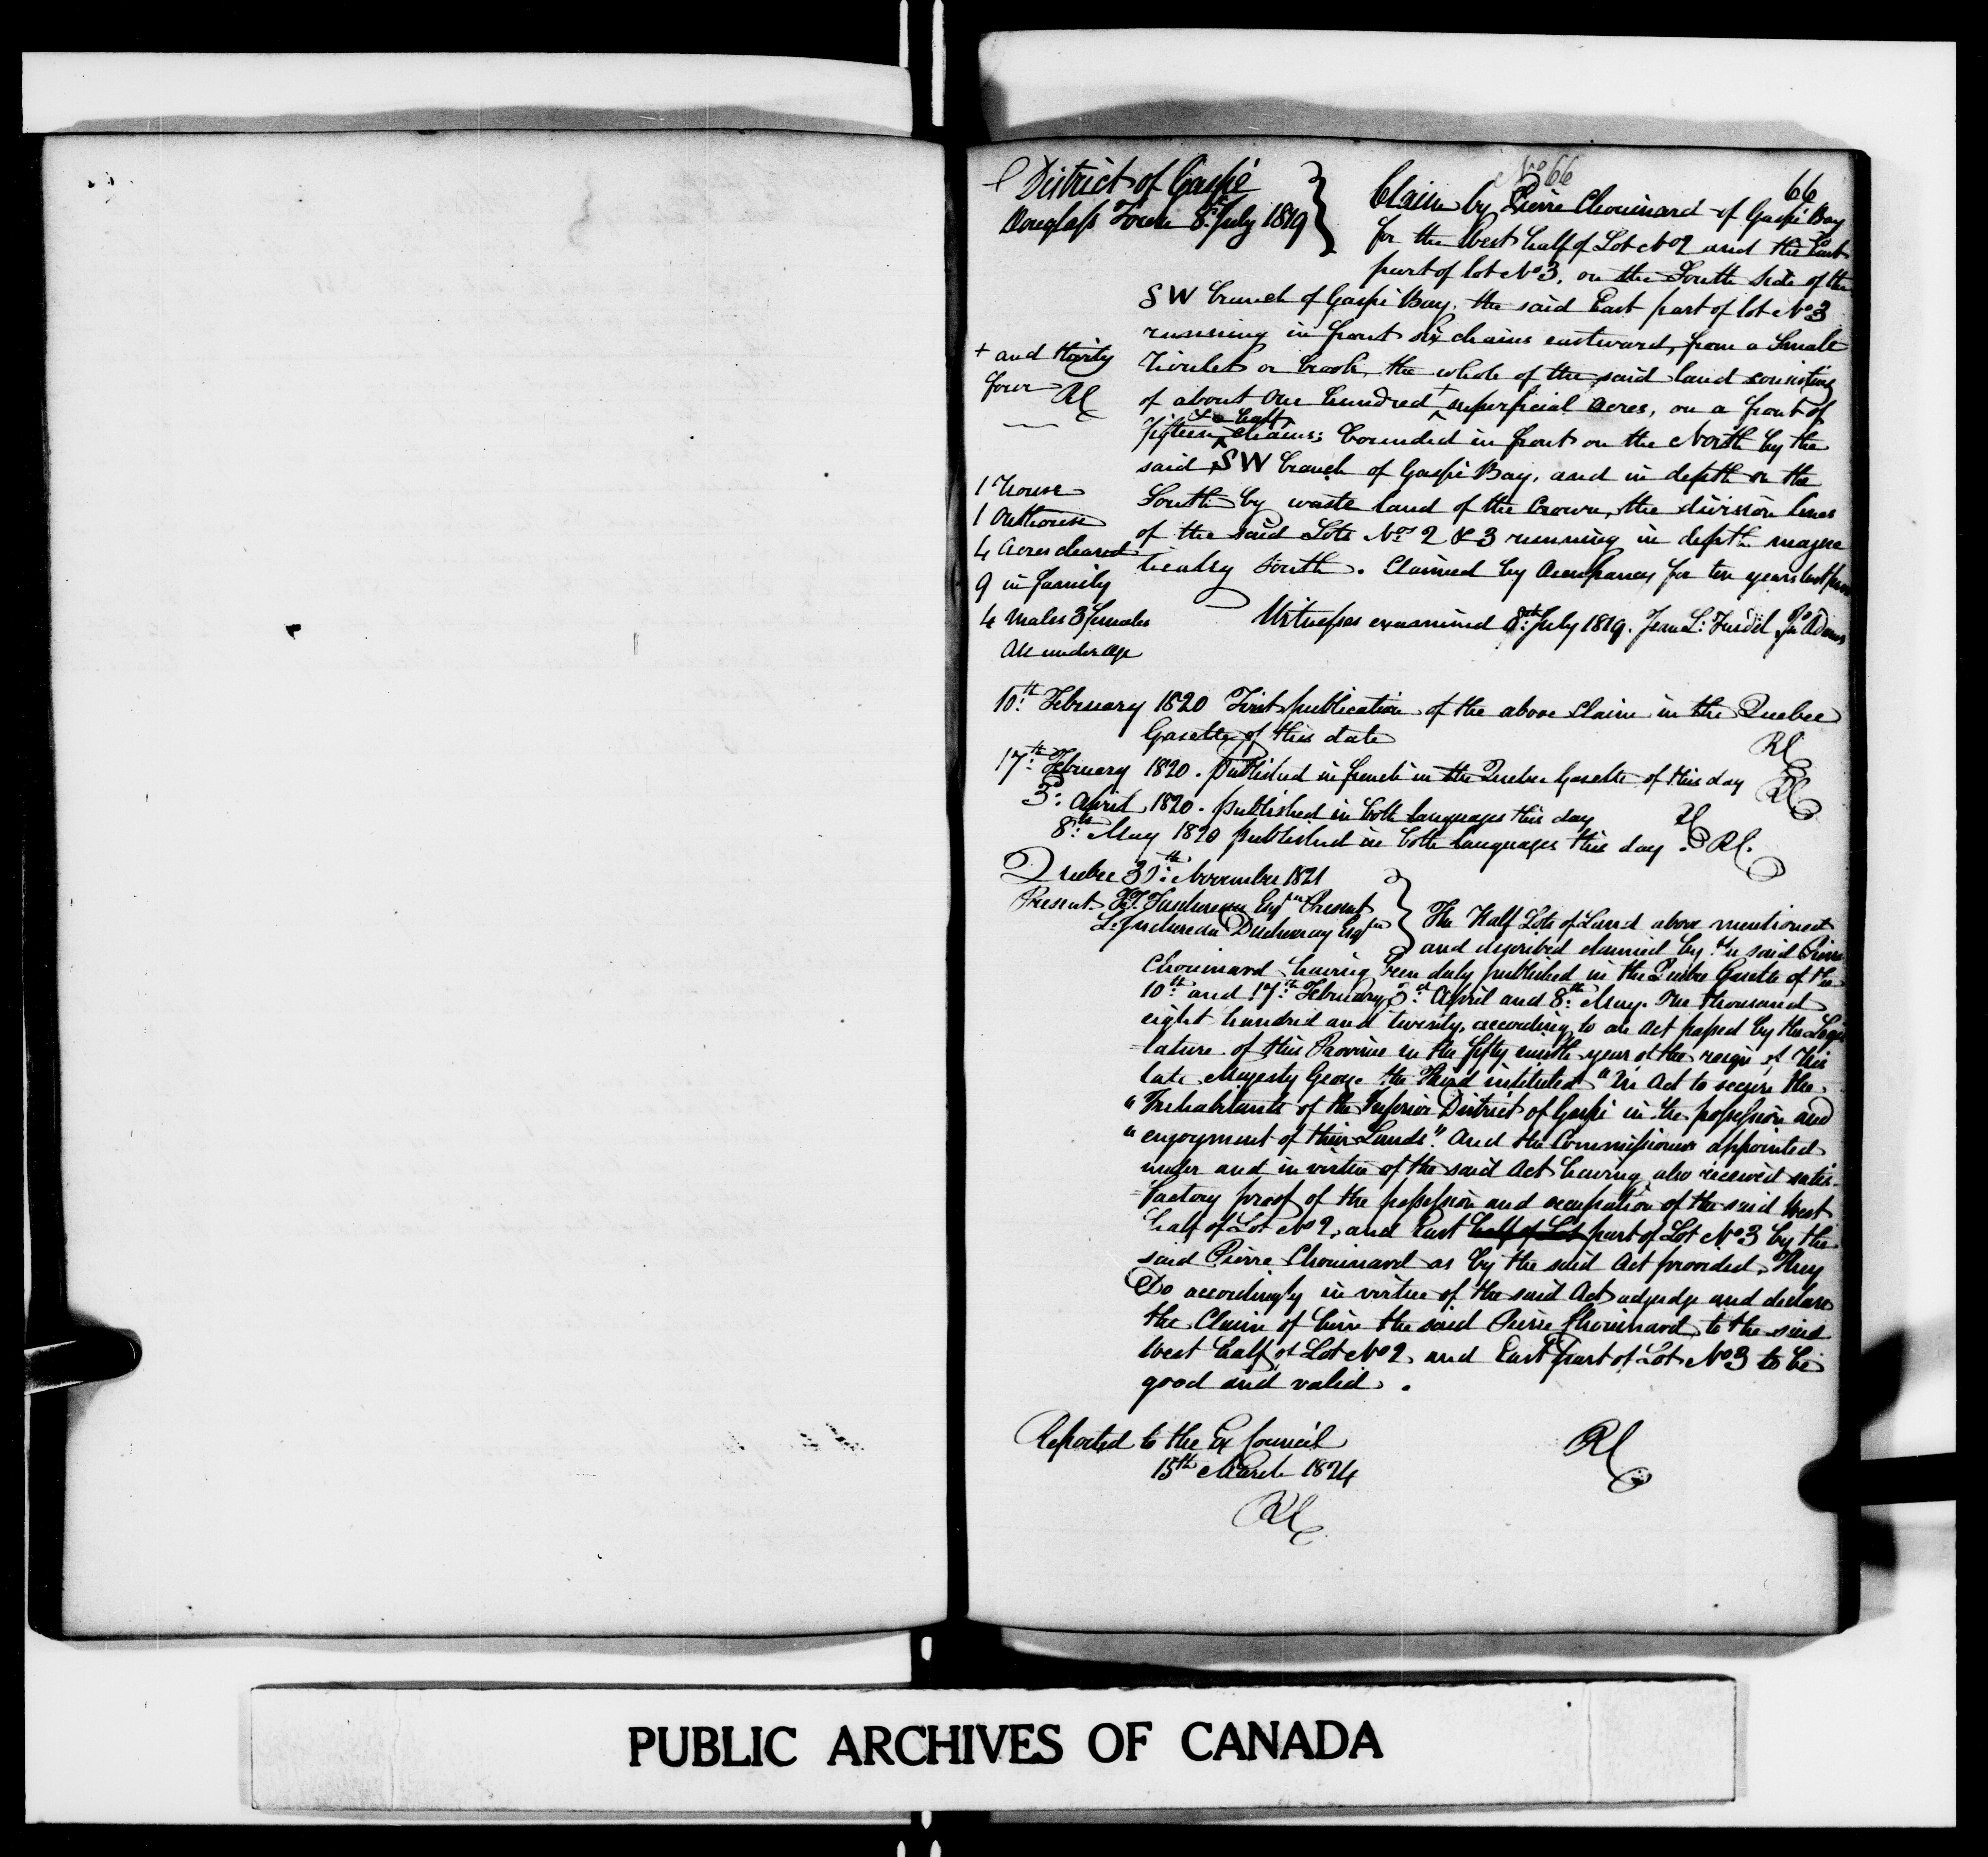 No 66
66
District of Gaspé
Douglass Town 8th July 1819
Claim by Pierre Chouinard of Gaspé Bay
for the West half of Lot No 2 and the East
part of lot No 3, on the South side of the
SW branch of Gaspé Bay, the said East part of lot No 3
running in front six chains eastward, from a Small
rivulet or brook, the whole of the said land consisting
+ and thirty
four RC
of about One hundred + superficial acres, on a front of
fifteen & a half chains; bounded in front on the North by the
said SW branch of Gaspé Bay, and in depth on the
South by waste land of the Crown, the division lines
of the said Lots Nos 2 & 3 running in depth magne
tically South. Claimed by Occupancy for ten years last past
1 house
1 Outhouse
4 Acres cleared
9 in family
4 Males 3 females
All under age
Witnesses examined 8th July 1819. Jean L:
10th February 1820 First publication of the above Claim in the Quebec
Gazette of this date RC
17th February 1820. Published in french in the Quebec Gazette of this day RC
3d April 1820. published in both languages this day RC
8th May 1820 published in both languages this day. RC.
Quebec November 1821
Present. Taschereau Esqre Present
L. Juchereau Duchesnay Esqre
The Half Lots of Land above mentioned
and described claimed by the said Pierre
Chouinard having been duly published in the Quebec Gazette of the
10th and 17th February, 3d April and 8th May. One thousand
eight hundred and twenty, according to an Act passed by the Legis
=lature of this Province in the fifty ninth year of the reign of His
late Majesty George the Third intituled "An Act to secure the
"Inhabitants of the Inferior District of Gaspé in the possession and
"enjoyment of their Lands". And the Commissioners appointed
under and in virtue of the said Act having also received satis-
=factory proof of the possession and occupation of the said West
half of Lot No 2, and East half of Lot part of Lot No 3 by the
said Pierre Chouinard as by the said Act provided, They
Do accordingly in virtue of the said Act adjudge and declare
the Claim of him the said Pierre Chouinard, to the said
West half of Lot No 2 and East part of Lot No 3 to be
good and valid.
RC
Reported to the Ex Council
15th March 1824
RC
PUBLIC ARCHIVES OF CANADA